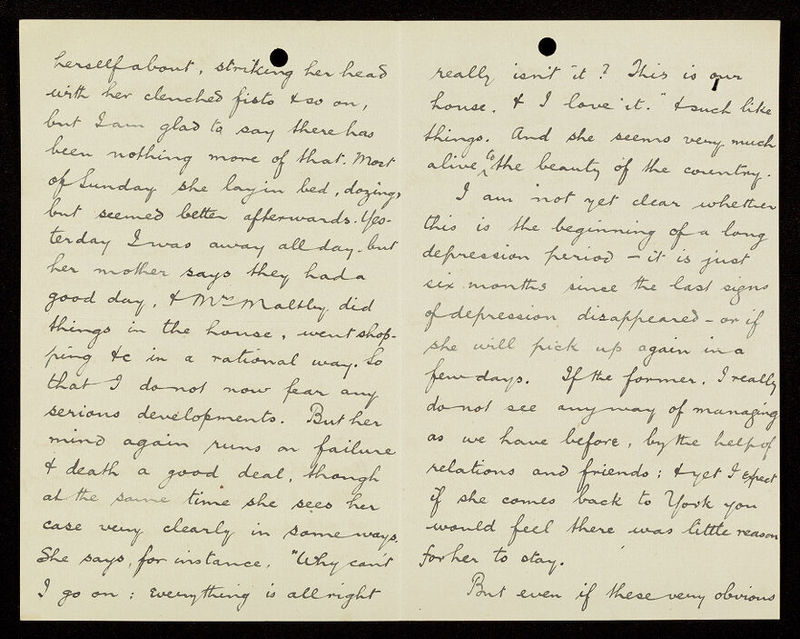 herself about, striking her head
with her clenched fists & so on,
but I am glad to say there has
been nothing more of that. Most
of Sunday she lay in bed, dozing,
but seemed better afterwards. Yes-
terday I was away all day, but
her mother says they had a
good day, & Mrs Maltby did
things in the house, went shop-
ping &c in a rational way. So
that I do not now fear any
serious developments. But her
mind again runs on failure
& death a good deal, though
at the same time she sees her
case very clearly in some ways.
She says, for instance, "Why can't
I go on: Everything is all right
really isn't it? This is our
house, & I love it." & such like
things. And she seems very much
alive to the beauty of the country.
I am not yet clear whether
this is the beginning of a long
depression period - it is just
six months since the last signs
of depression disappeared - or if
she will pick up again in a
few days. If the former, I really
do not see any way of managing
as we have before, by the help of
relations and friends; & yet I expect
if she comes back to York you
would feel there was little reason
for her to stay.
But even if these very obvious